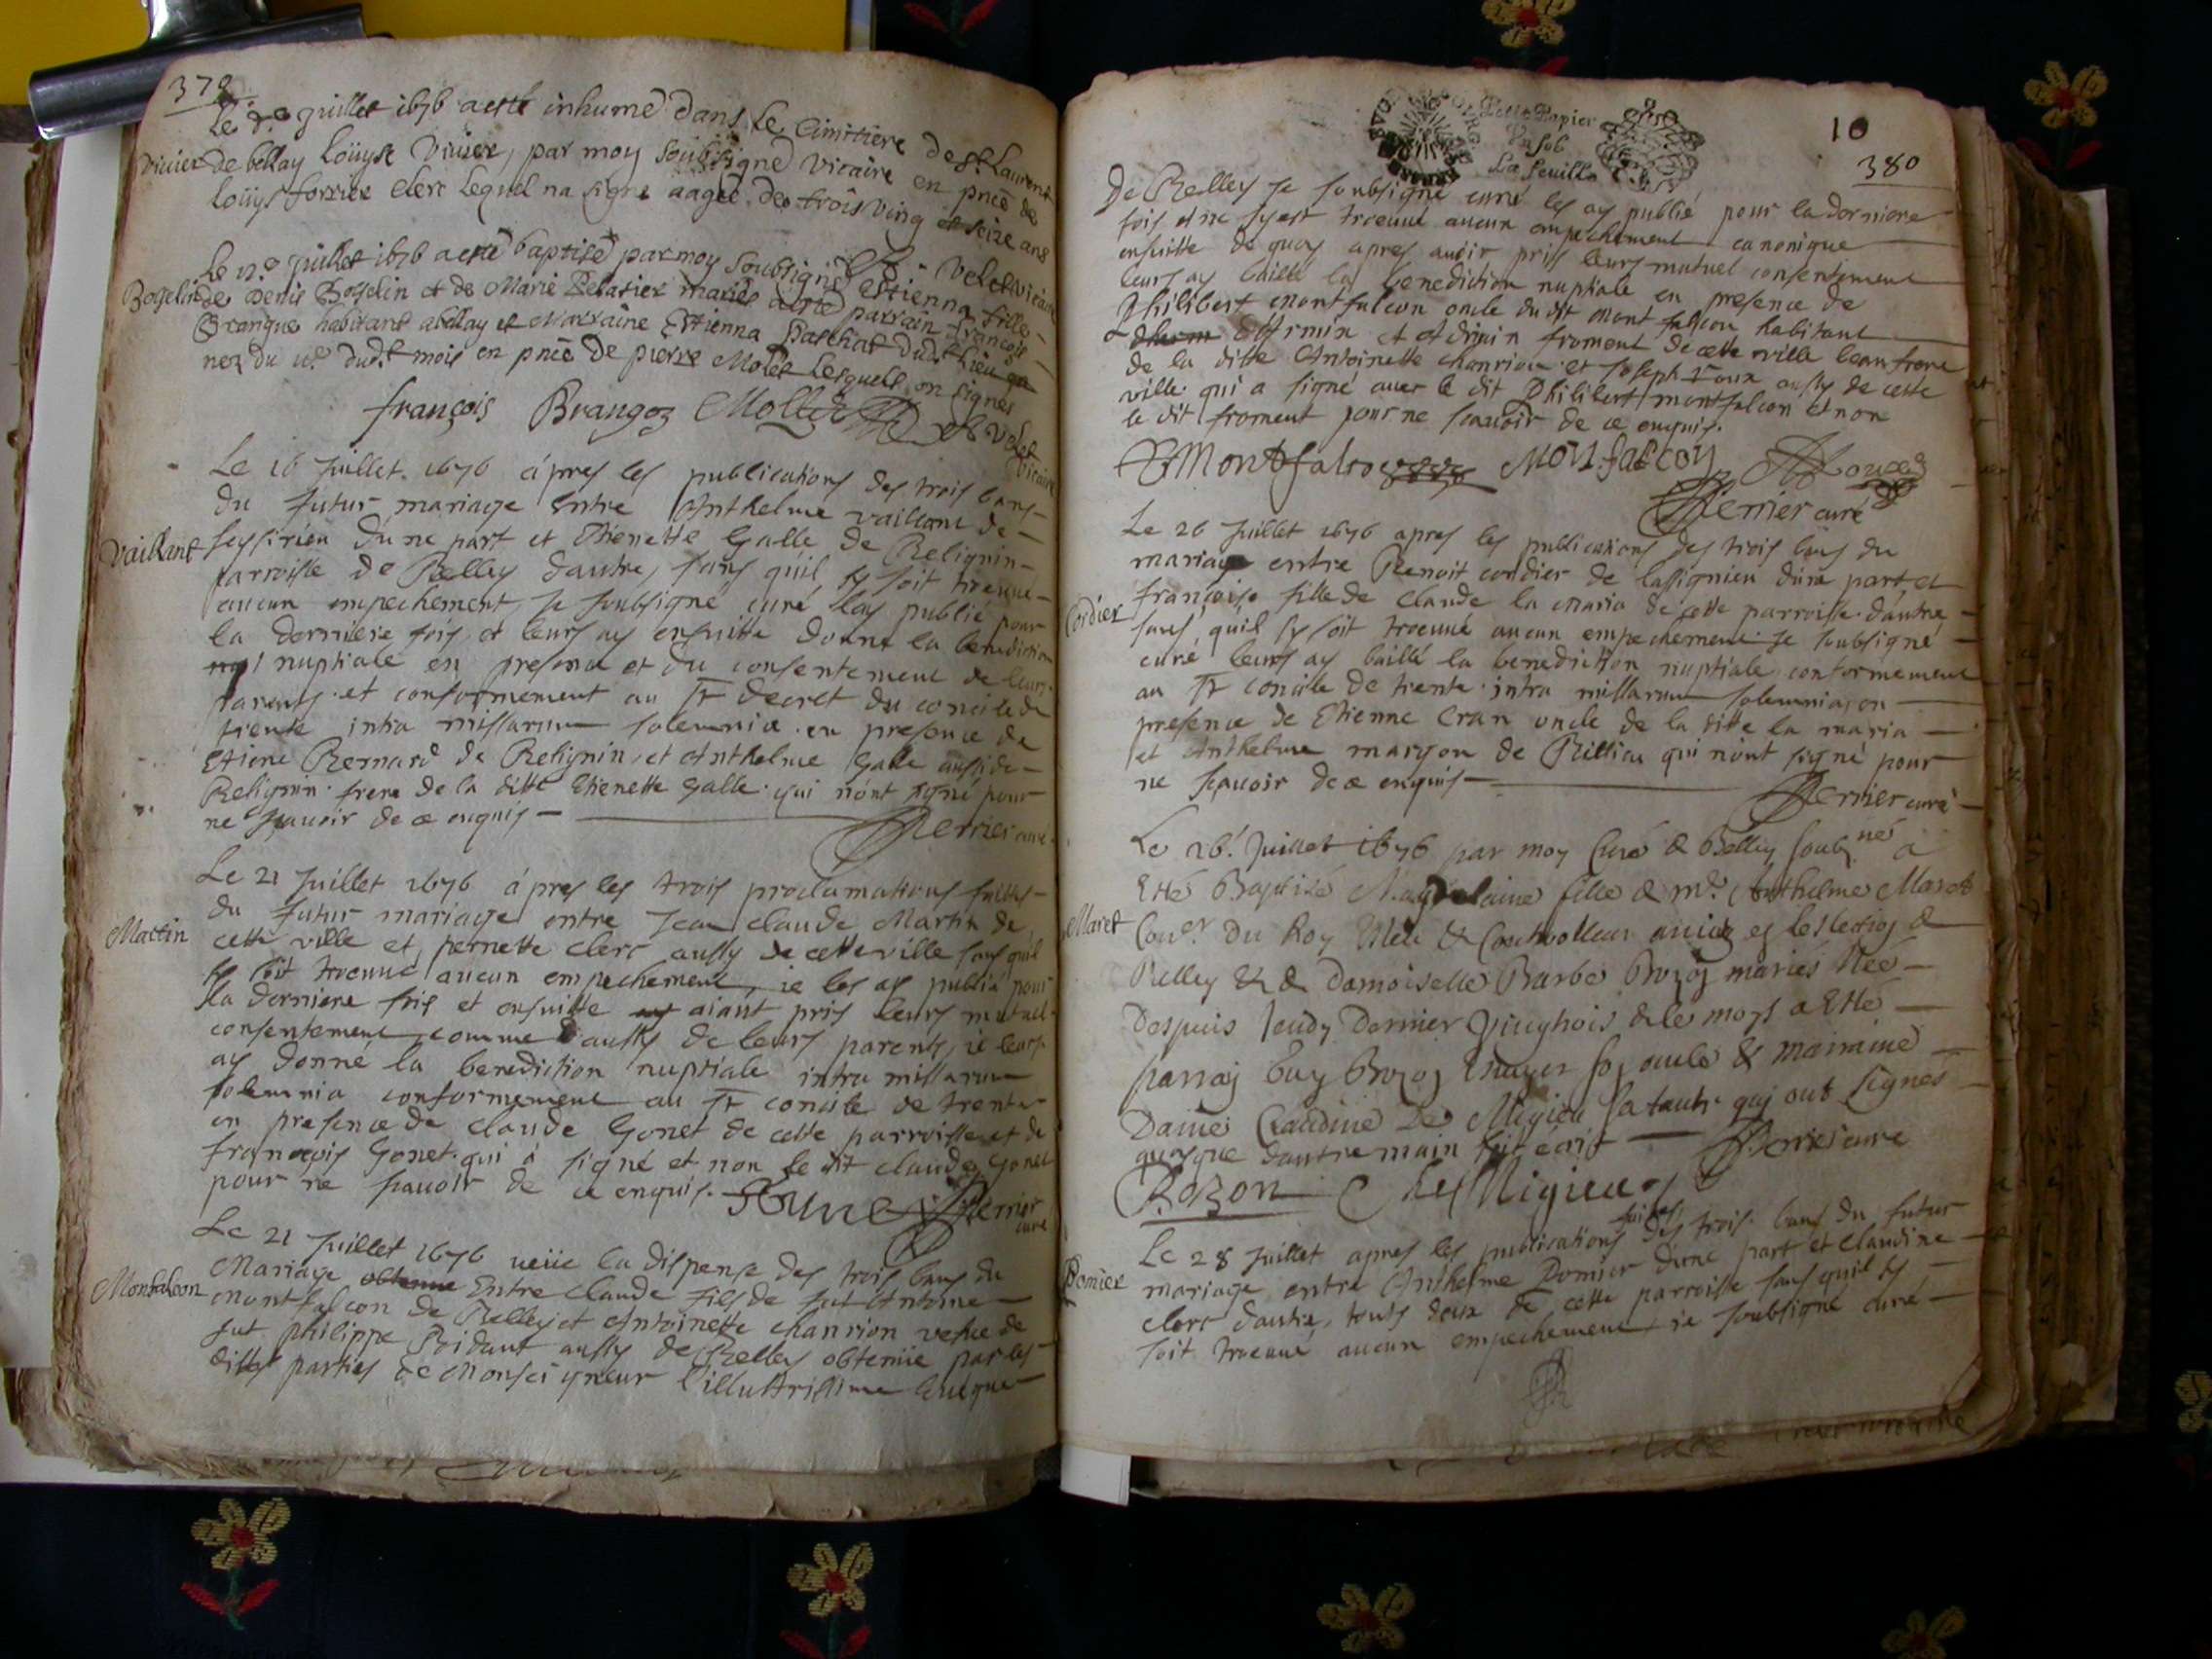 378
Le juillet 1676 a esté inhumé dans le Cimittiere de St Laurent
Vivier
de bellay loüyse Vivier, par moy soubsigné vicaire en pnce de
loüys forrier clerc lequel na signé aagée de trois ving et seize ans
Velet vicaire
Le juillet 1676 a esté baptisé par moy soubsigné Estienna fille
Bosselin
de Denis Bosselin et de Marie Pelatier mariés a esté parrain François
Brangue habitant abellay et Marraine Estienna Paschat dudt lieu
nez du dudt mois en pnce de pierre Mollet lesquels on signés
françois Brangoz Mollet Velet
vicaire
Le 16 Juillet 1676 apres les publications des trois bans
du futur mariage Entre Anthelme vaillant de
Vaillant
seyssirieu d'une part et Etienette Galle de Belignin
parroisse de Belley d'autre, sans quil sy soit treuué
aucun empechement, je soubsigné curé lay publié pour
la derniere fois et leurs ay ensuitte donné la benediction
nuptiale en presence et du consentement de leurs
parents et conformement au St decret du concile de
trente intra missarum solemnia en presence de
Etiene Bernard de Belignin, et Anthelme Galle aussi de
Belignin frere de la ditte Etienette Galle qui nont signé pour
ne scauoir de ce enquis
Perrier curé
Le 21 Juillet 1676 apres les trois proclamations faittes
du futur mariage entre Jean Claude Martin de
Martin
cette ville et pernette Clerc aussy de cette ville sans quil
sy soit troeuué aucun empechement, ie les ay publié pour
la derniere fois et ensuitte aiant pris leurs mutuel
consentement comme aussy de leurs parents, ie leurs
ay donné la benediction nuptiale intra missarum
solemnia conformement au St concile de trente
en presence de Claude Gonet de cette parroisse et de
françois Gonet qui a signé et non le dit Claude Gonet
pour ne scauoir de ce enquis.
Perrier
curé
Le 21 Juillet 1676 ueüe la dispense des trois bans du
Mariage obtenue Entre Claude fils de fut Antoine
Monfalcon
montfalcon de Belley et Antoinette Chanrion vefue de
fut philippe Boidant aussy de Belley obtenüe par les
dittes parties de Monseigneur l'illustrissime Euêque
Petit Papier
Un sol
La feuille
10
380
De Belley je soubsigné curé les ay publié pour la derniere
fois et ne sy est troeuué aucun empechement canonique
ensuitte de quoy apres auoir pris leurs mutuel consentement
leurs ay baillé la benediction nuptiale en presence de
Philibert montfalcon oncle du dit montfalcon habitant
froment de cette ville beau frere
de la ditte Antoinette Chanrion et Joseph Roux aussy de cette
ville qui a signé auec le dit Philibert montfalcon et non
le dit froment pour ne scauoir de ce enquis.
Montfalcon Monfalcon
Perrier curé
Le 26 Juillet 1676 apres les publications des trois bans du
mariage entre Benoit cordier de lassignieu d'une part et
françoise fille de Claude la Maria de cette parroisse d'autre
Cordier
sans quil sy soit troeuué aucun empechement je soubsigné
curé leurs ay baillé la benediction nuptiale conformement
au St concile de trente intra missarum solemnia, en
presence de Etienne Cran oncle de la ditte la maria
et Anthelme maryon de Billieu qui nont signé pour
ne scauoir de ce enquis
Perrier curé
Le 26 Juillet 1676 par moy Curé de Belley soubsnés a
Esté Baptisé Magdelaine fille de Mr Anthelme Maret
Maret
Conser du Roy Esleu & Controlleur en leslection de
Belley & de Damoiselle Barbe Bozon mariés Née
Despuis Jeudy Dernier Vingtrois de le moys a Esté
parrain Guy Bozon son oncle & mairaine
Dame Claudine De Migieu sa tante qui ont signés
quoyque dautre main soit ecrit
Perrier curé
Bozon De Migieu
Le 28 Juillet apres les publications faites des trois bans du futur
Domier
mariage entre Anthelme Domier d'une part et Claudine
clerc dautre, touts deux de cette parroisse sans quil sy
soit troeuué aucun empechement, ie soubsigné curé